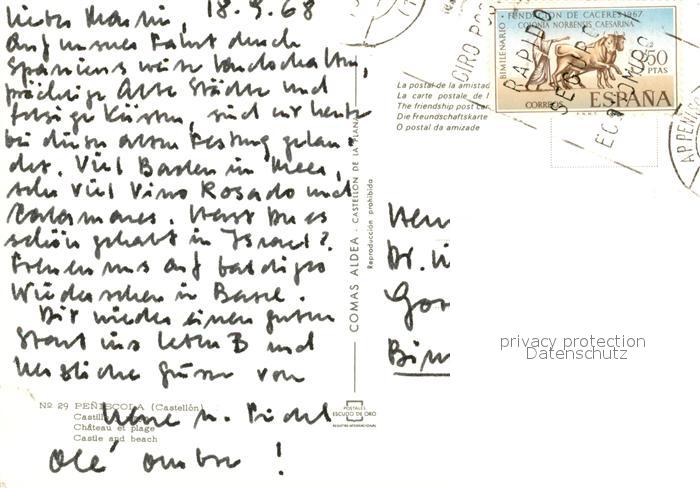 Lieber Martin, 18.9.68
Auf unsrer Fahrt durch
Spaniens weite Landschaften,
prächtige alte Städte und
felsige Küsten, sind wir heute
bei dieser alten Festung gelan-
det. Viel Baden im Meer,
sehr viel Vino Rosado und
Calamares. Hast Du es
schön gehabt in Israel?
Freuen uns auf baldiges
Wiedersehen in Basel.
Dir wieder einen guten
Start ins und
herzliche Grüsse von
u.
Olé ombre!
Nº 29 PEÑISCOLA (Castellón)
Château et plage
Castle and beach
POSTALES
ESCUDO DE ORO
REGISTRO INTERNACIONAL
COMAS ALDEA - CASTELLON DE LA PLANA
Reproducción prohibida
La postal de la amistad
La carte postale de l
The friendship post car
Die Freundschaftskarte
O postal da amizade
BIMILENARIO · FUNDACION DE CACERES 1967
COLONIA NORBENSIS CAESARINA
3'50
PTAS
CORREOS
ESPAÑA
F.N.M.T.
GIRO POS
RAPIDO
SEGURO
ECONOMICO
APPENW
Herr
Dr.
Bin
privacy protection
Datenschutz